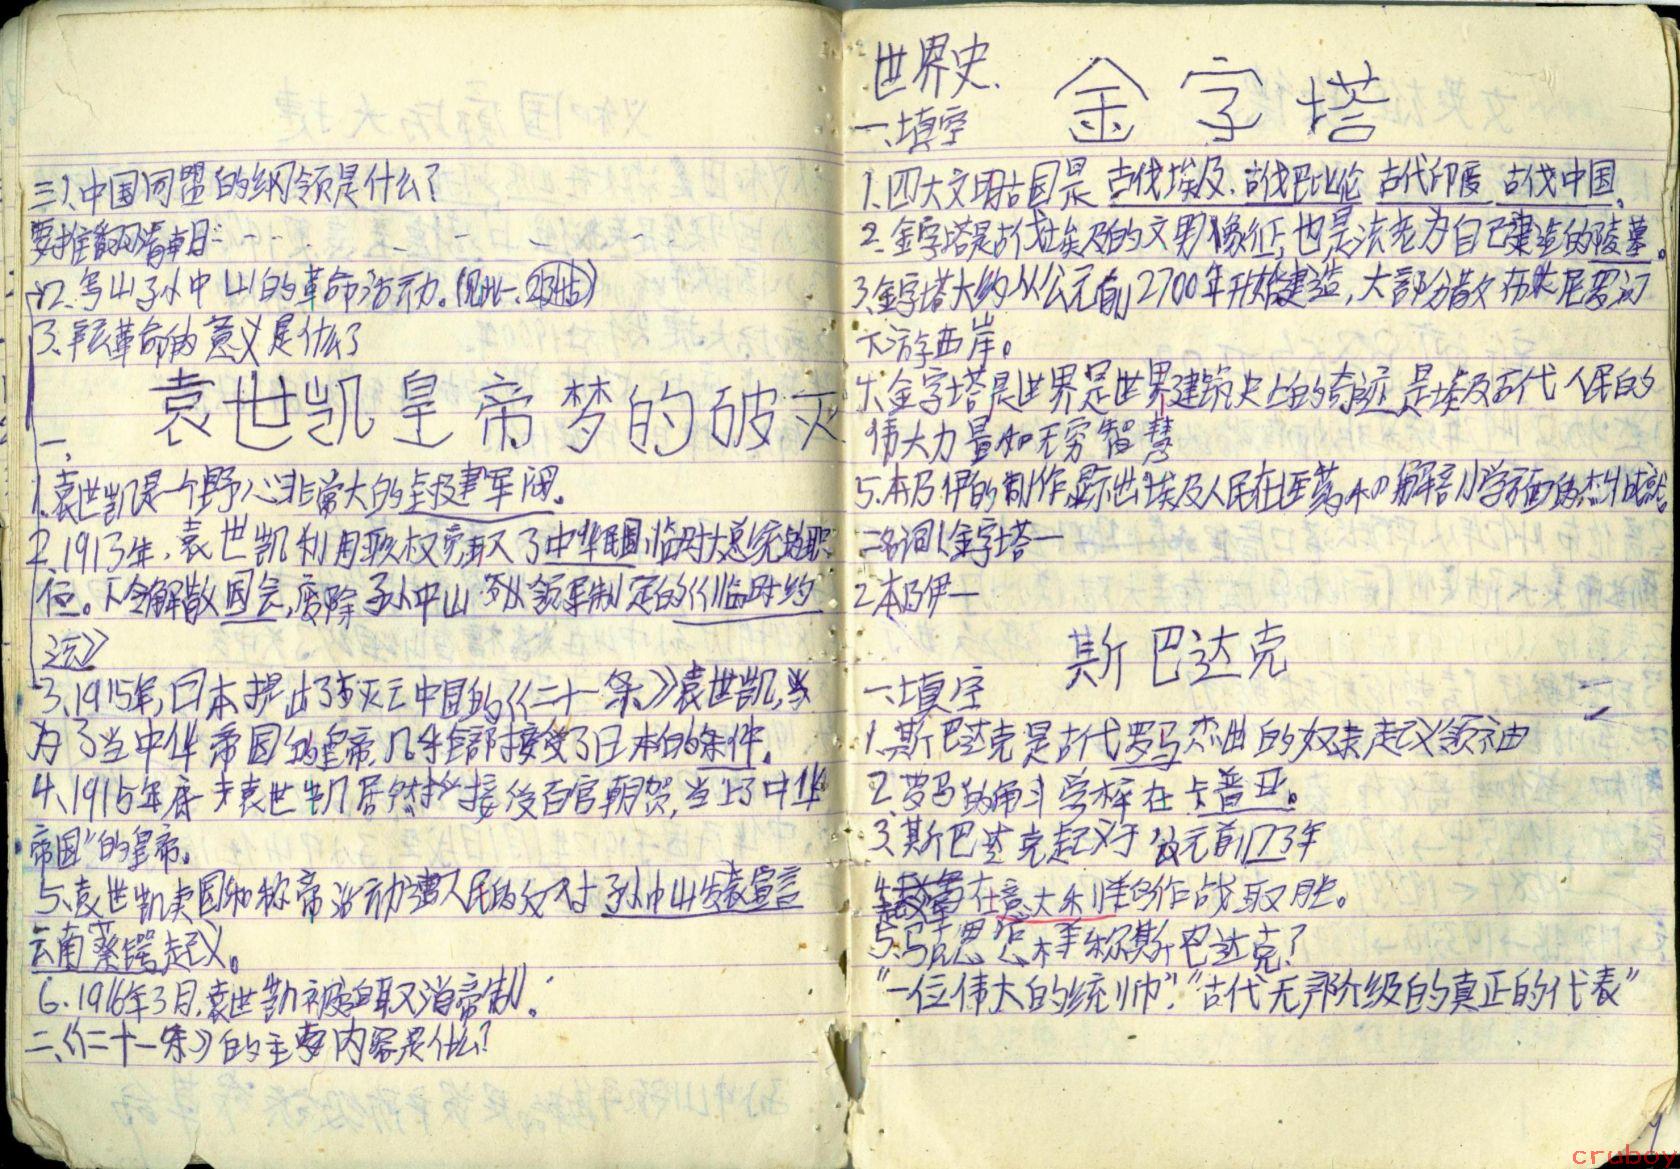 三、1.中国同盟的纲领是什么?
要推翻满清政
2.写出孙中山的革命活动。(见一、2总结)
3.辛亥革命的意义是什么?
袁世凯皇帝梦的破灭
一、
1.袁世凯是一个野心非常大的军阀。
2.1913年,袁世凯利用职权窃取了中华民国临时大总统的职
位。下令解散国会,废除孙中山领导制定的《临时约
法》
3、1915年,日本提出了灭亡中国的《二十一条》袁世凯,
为了当中华帝国的皇帝,几乎全部接受了日本的条件。
4、1915年底袁世凯居然接受百官朝贺,当上了中华
帝国"的皇帝。
5、袁世凯卖国和称帝活动遭人民的反对孙中山发表宣言
云南蔡锷起义。
6、1916年3月,袁世凯被迫取消帝制。
二、《二十一条》的主要内容是什么?
世界史.
金字塔
一、填空
1.四大文明古国是古代埃及.古代巴比伦 古代印度 古代中国。
2.金字塔是古代埃及的文明像征,也是法老为自己建造的陵墓。
3.金字塔大约从公元前2700年开始建造,大部分散布在尼罗河
下游西岸。
4.金字塔是世界是世界建筑史上的奇迹 是埃及古代人民的
伟大力量和无穷智慧
5.木乃伊的制作显示出埃及人民在医药和解剖学方面的杰出成就。
二名词1金字塔一
2木乃伊一
斯巴达克
一、填空
1.斯巴达克是古代罗马杰出的奴隶起义领袖
2.罗马的角斗学校在卡普亚。
3.斯巴达克起义于公元前173年
4.起义军在意大利的作战取胜。
5.马克思怎样称斯巴达克?
"一位伟大的统帅"."古代无产阶级的真正的代表"
cruboy